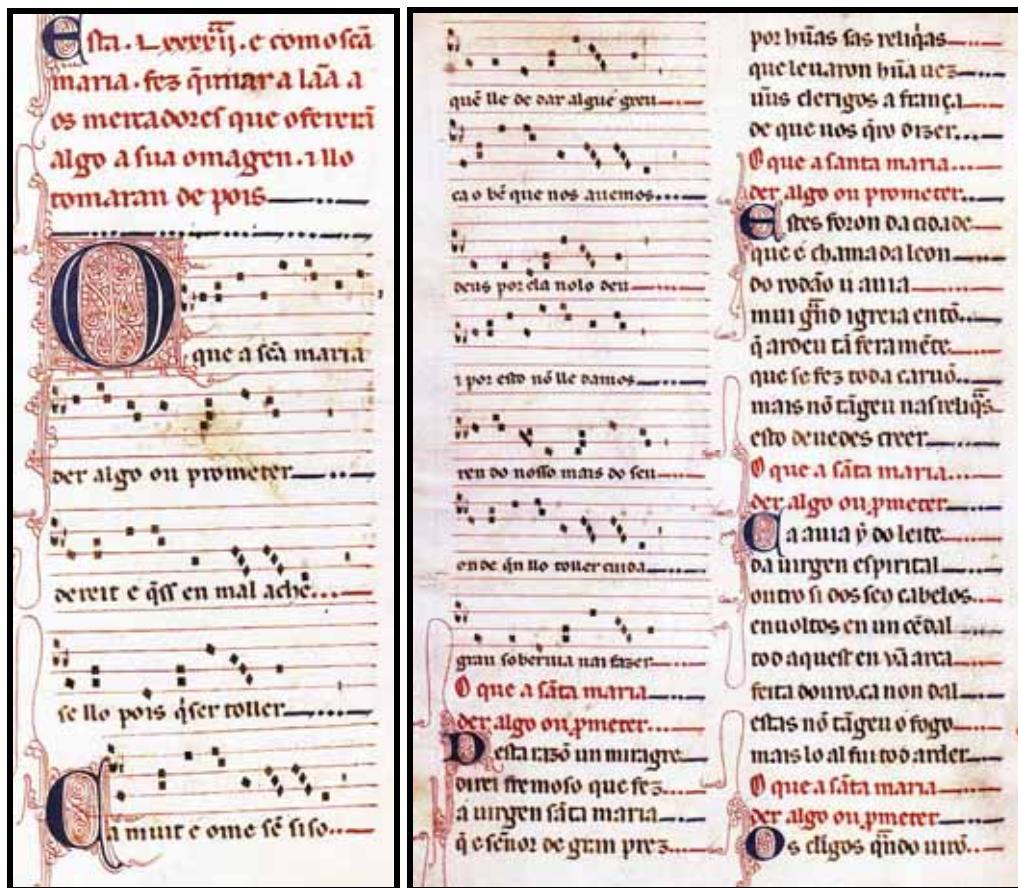 Esta .Lxxxxij. e como scã
maria . fez q̃imar a lãa a
os mercadores que ofererã
algo a sua omagen . ⁊ llo
tomaran de pois
O que a scã maria
der algo ou prometer
dereit e q̃ss en mal ache
se llo pois q̃ser toller
Ca muit e ome sẽ siso
quẽ lle de dar alguẽ greu
ca o bẽ que nos auemos
deus por ela nolo deu
⁊ por esto nõ lle damos
ren do nosso mais do seu
onde q̃n llo toller cuida
gran soberuia uai fazer
O que a sãta maria
der algo ou ꝓmeter
Desta razõ un miragre
direi fremoso que fez
a uirgen sãta maria
q̃ e señor de gram prez
por hũas sas reliq̃as
que leuaron hũa uez
ũus clerigos a frança
de que uos q̃ro dizer
O que a santa maria
der algo ou prometer
Estes foron da cidade
que é chamada leon
do rodão u auia
mui grãd igreia entõ
q̃ ardeu tã feramẽte
que se fez toda caruõ
mais nõ tãgeu nas reliq̃s
esto deuedes creer
O que a sãta maria
der algo ou ꝓmeter
Ca auia ẏ do leite
da uirgen espirital
outro si dos seo cabelos
enuoltos en un cẽdal
tod aquest en ũa arca
feita douro, ca non dal
estas nõ tãgeu o fogo
mais lo al fui tod arder
O que a sãta maria
der algo ou ꝓmeter
Os cl̃igos q̃ndo uirõ